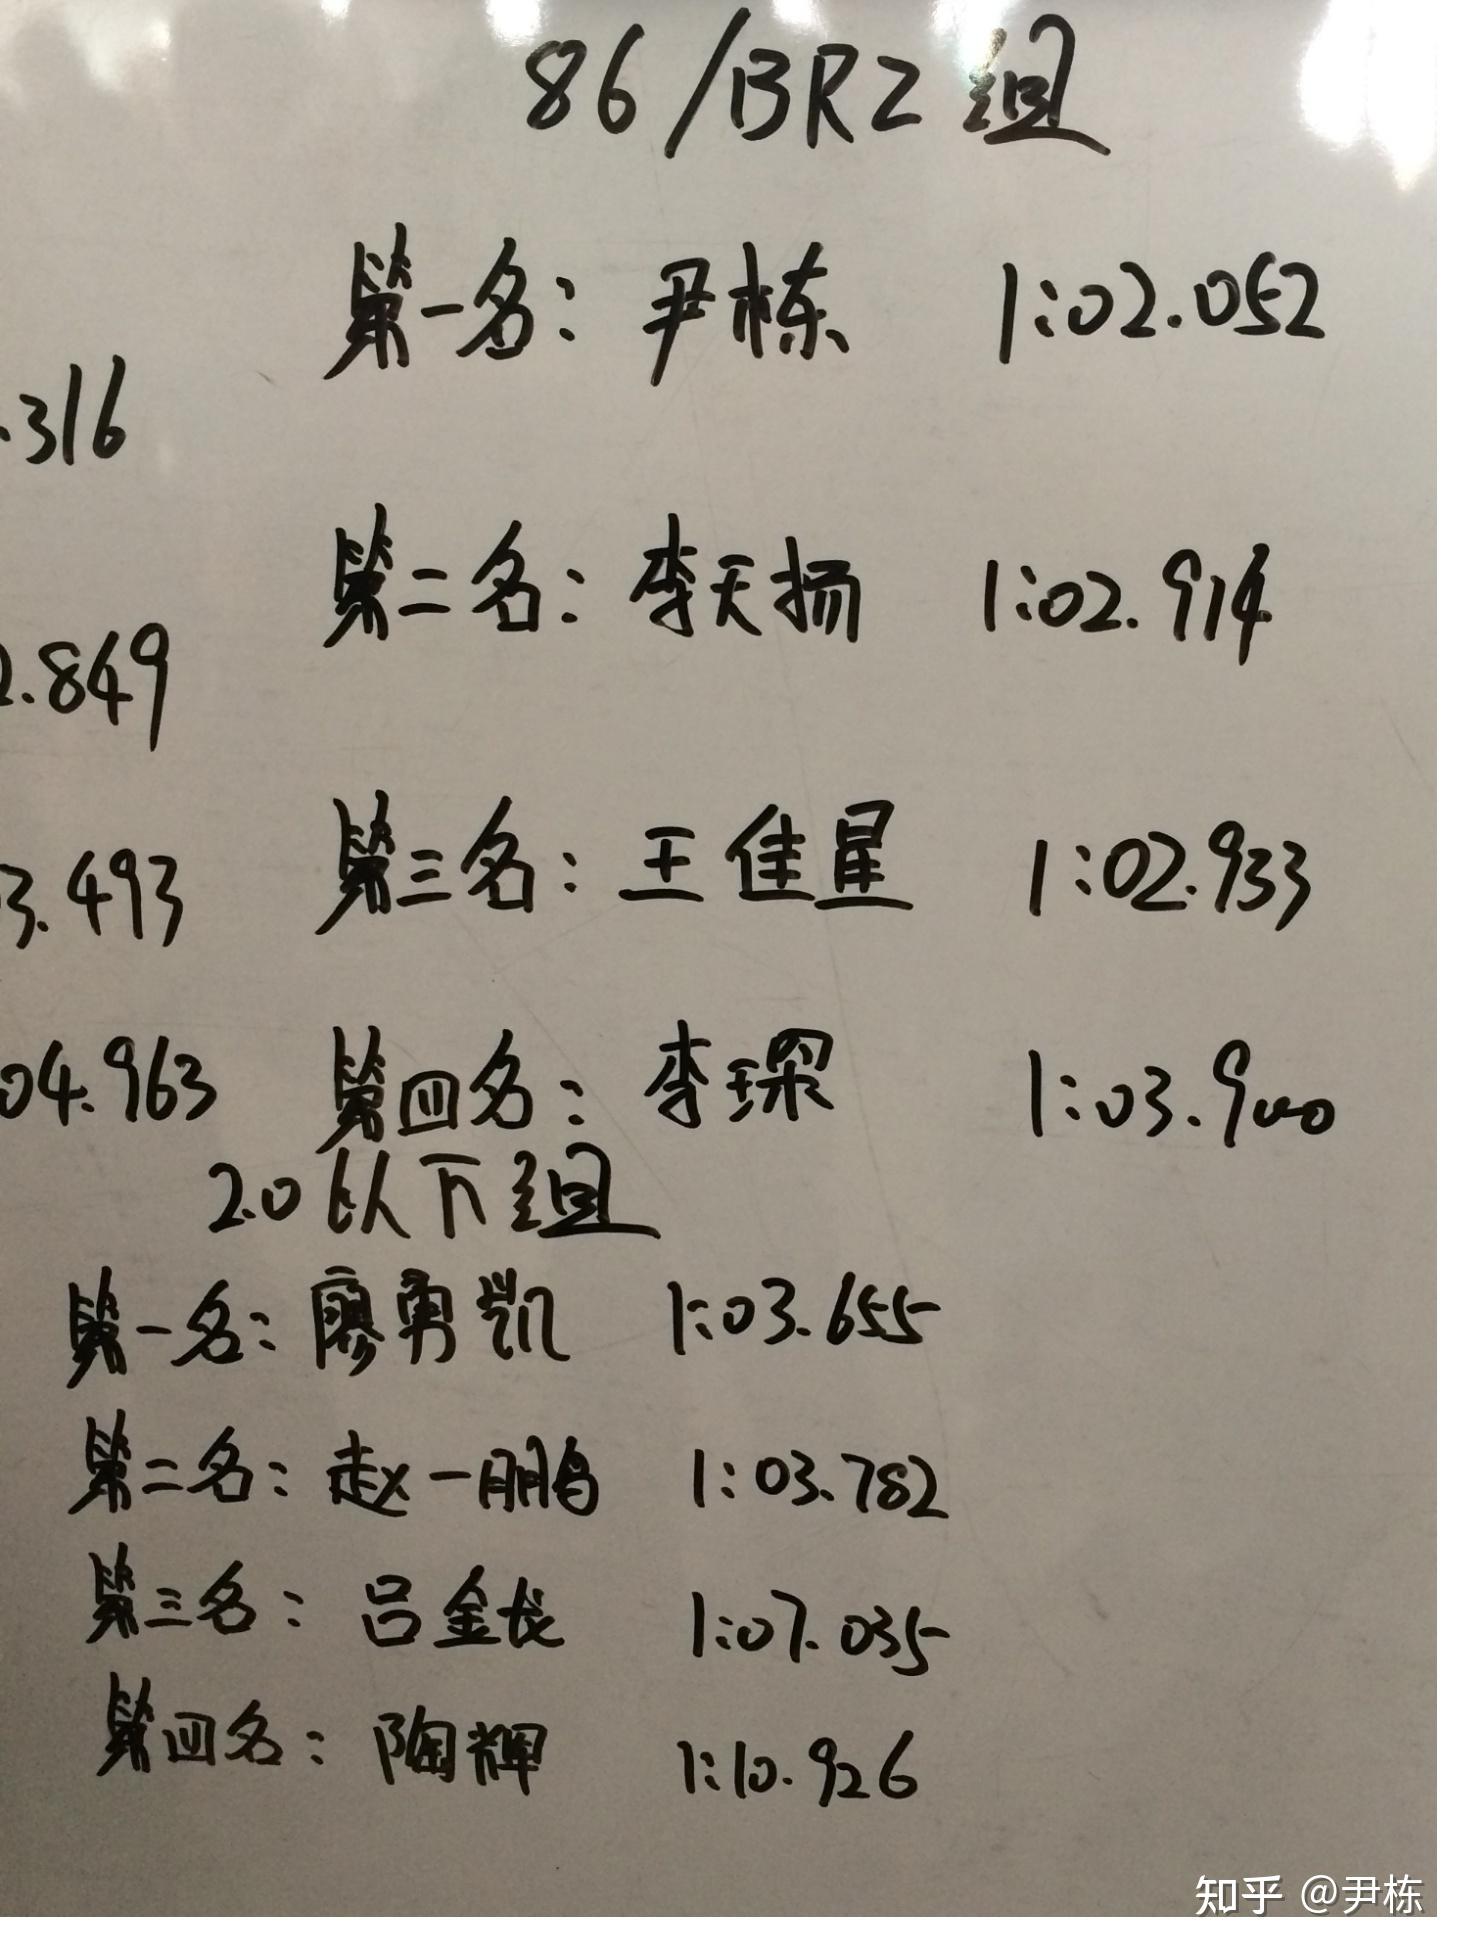 86/BRZ组
第一名：尹栋 1:02.052
.316
第二名：李天扬 1:02.914
2.849
第三名：王佳星 1:02.933
3.493
第四名：李琛 1:03.900
04.963
2.0以下组
第一名：廖勇凯 1:03.655
第二名：赵一鹏 1:03.782
第三名：吕金龙 1:07.035
第四名：陶辉 1:10.926
知乎 @尹栋